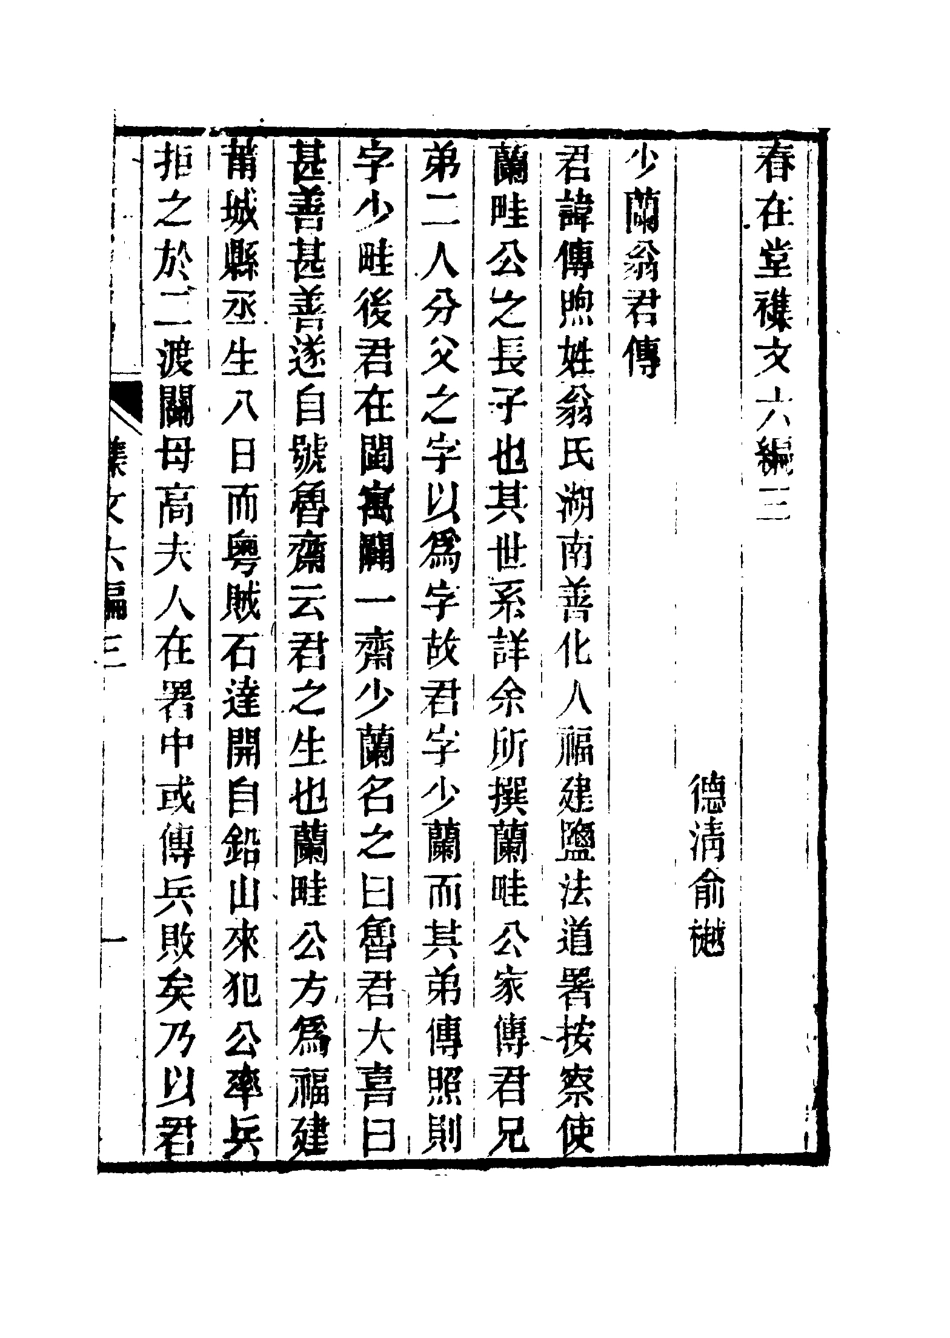 春在堂襍文六編三
德淸俞樾
少蘭翁君傳
君諱傳煦姓翁氏湖南善化人福建鹽法道署按察使
蘭畦公之長子也其世系詳余所撰蘭畦公家傳君兄
弟二人分父之字以爲字故君字少蘭而其弟傳照則
字少畦後君在閩寓闢一齋少蘭名之曰魯君大喜曰
甚善甚善遂自號魯齋云君之生也蘭畦公方爲福建
莆城縣丞生八日而粤賊石達開自鉛山來犯公率兵
拒之於二渡關母高夫人在署中或傳兵敗矣乃以君
襍文六編三
一